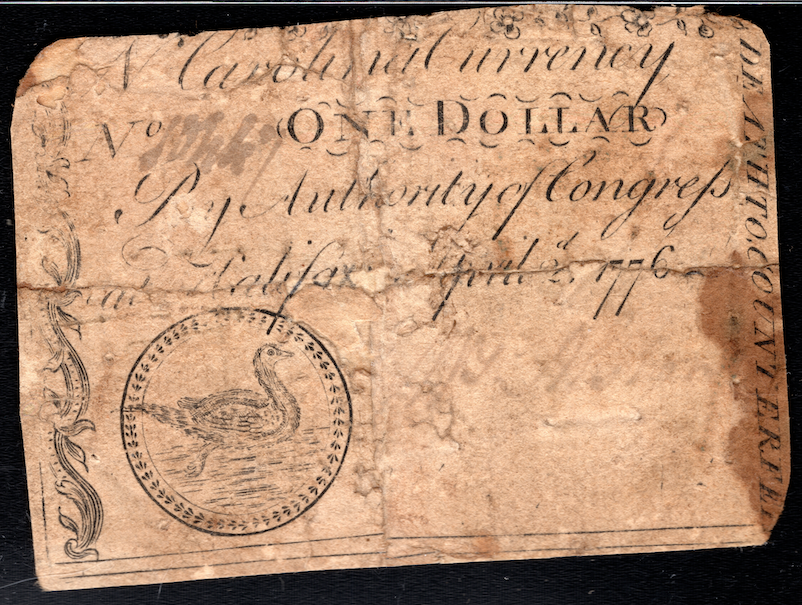 N Carolina Currency
No
ONE DOLLAR
By Authority of Congreſs
at Halifax April 2d. 1776
DEATH TO COUNTERFEI